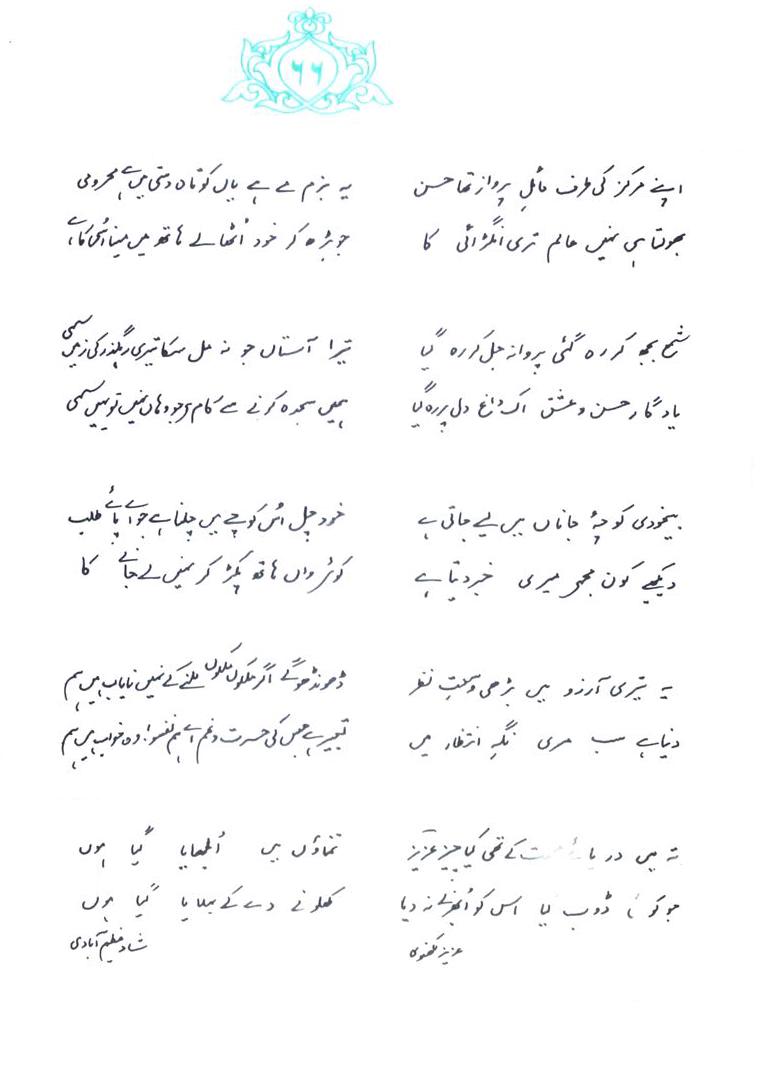 ۶۶
اپنے مرکز کی طرف مائلِ پرواز تھا حسن
بھولتا ہی نہیں عالم تری انگڑائی کا
شمع بجھ کر رہ گئی پروانہ جل کر رہ گیا
یادگار حسن و عشق اک داغ دل پر رہ گیا
بیخودی کوچۂ جاناں میں لیے جاتی ہے
دیکھیے کون مجھے میری خبر دیتا ہے
یہ تیری آرزو میں بڑھی وسعتِ نظر
دنیا ہے سب مری نگہِ انتظار میں
تہ میں دریائے محبت کے تھی کیا چیز عزیز
جو کوئی ڈوب گیا اس کو اُبھرنے نہ دیا
عزیز لکھنوی
یہ بزم مے ہے یاں کوتاہ دستی میں ہے محرومی
جو بڑھ کر خود اُٹھا لے ہاتھ میں مینا اُسی کا ہے
تیرا آستاں جو نہ مل سکا تیری رہگذر کی زمیں سہی
ہمیں سجدہ کرنے سے کام ہے جو وہاں نہیں تو یہیں سہی
خود چل اُس کوچے میں چلنا ہے جو اے پائے طلب
کوئی واں ہاتھ پکڑ کر نہیں لے جانے کا
ڈھونڈھو گے اگر ملکوں ملکوں ملنے کے نہیں نایاب ہیں ہم
تعبیر ہے جس کی حسرت و غم اے ہم نفسو! وہ خواب ہیں ہم
تمناؤں میں اُلجھایا گیا ہوں
کھلونے دے کے بہلایا گیا ہوں
شاد عظیم آبادی